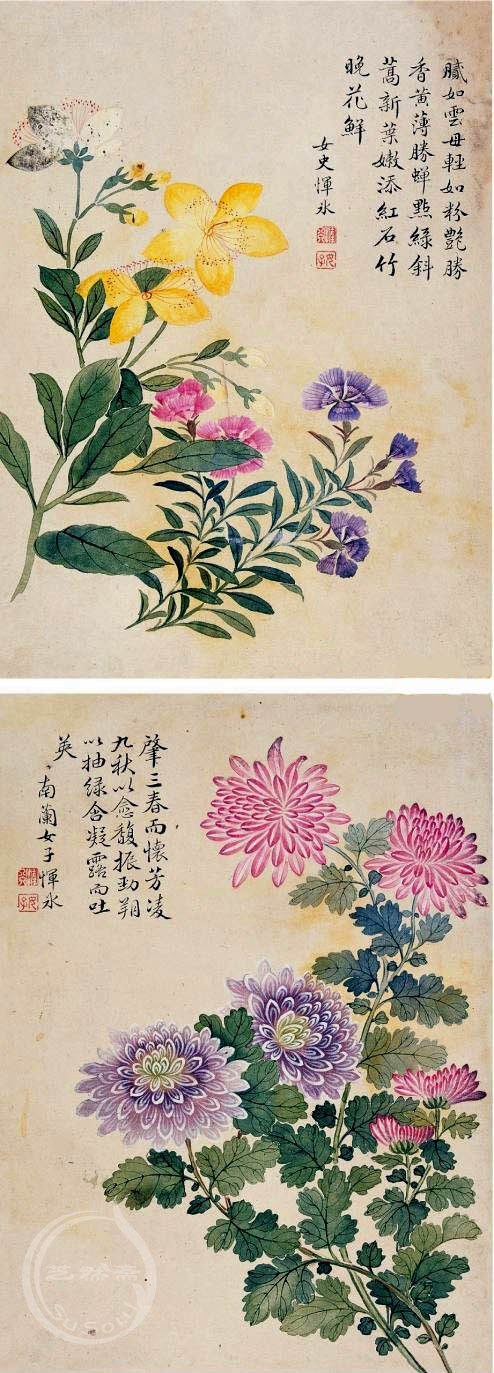 膩如雲母輕如粉艷勝
香黃薄勝蟬點綠斜
蒿新葉嫩添紅石竹
晚花鮮
女史惲冰
肇三春而懷芳凌
九秋以愈馥振勁朔
以抽綠含凝露而吐
英
南蘭女子惲冰